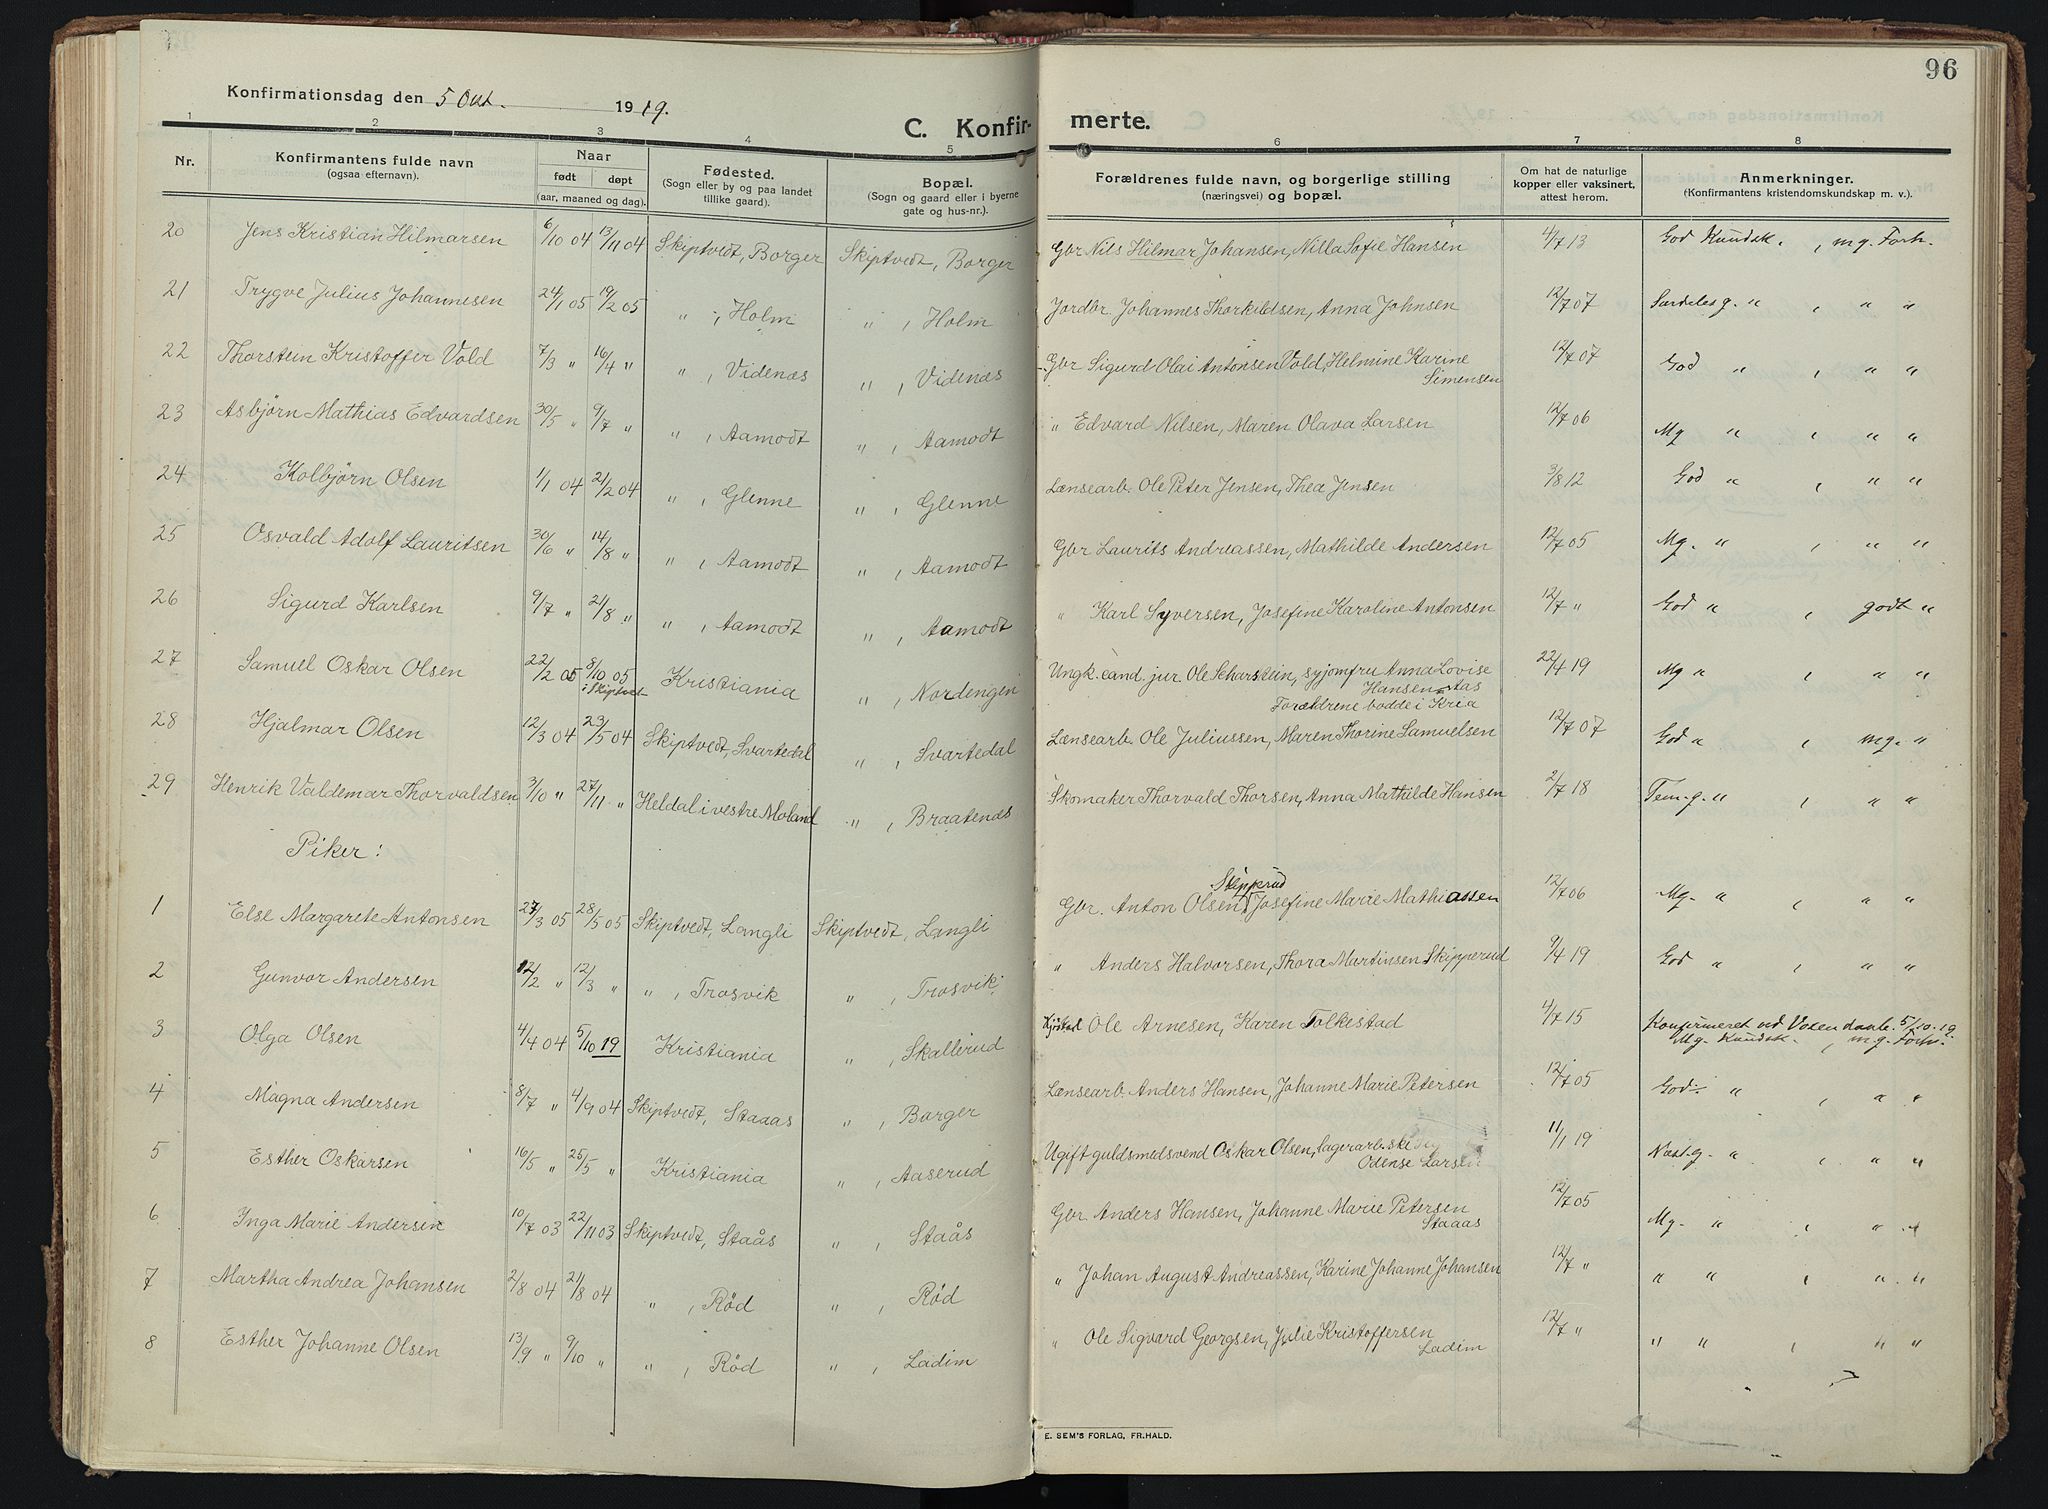 96
Konfirmationsdag den 5 Okt. 1919.
C. Konfir- merte.
1 2 3 4 5 6 7 8
Nr. Konfirmantens fulde navn (ogsaa efternavn). Naar født døpt (aar, maaned og dag). Fødested. (Sogn eller by og paa landet tillike gaard). Bopæl. (Sogn og gaard eller i byerne gate og hus-nr.). Forældrenes fulde navn, og borgerlige stilling (næringsvei) og bopæl. Om hat de naturlige kopper eller vaksinert, attest herom. Anmerkninger. (Konfirmantens kristendomskundskap m. v.).
20 Jens Kristian Hilmarsen 6/10 04 13/11 04 Skiptvedt, Borger Skiptvedt, Borger Gbr Nils Hilmar Johansen, Nilla Sofie Hansen 4/7 13 God Kundsk. , mg. Forh.
21 Trygve Julius Johannesen 24/1 05 19/2 05 " , Holm " , Holm Jordbr. Johannes Thorkildsen, Anna Johnsen 12/7 07 Særdeles g. " , " "
22 Thorstein Kristoffer Vold 7/3 " 16/4 " " , Videnæs " , Videnæs Gbr Sigurd Olai Antonsen Vold, Helmine Karine Simensen 12/7 07 God " , " "
23 Asbjørn Mathias Edvardsen 30/5 " 9/7 " " , Aamodt " , Aamodt " Edvard Nilsen, Maren Olava Larsen 12/7 06 Mg " , " "
24 Kolbjørn Olsen 1/1 04 21/2 04 " , Glenne " , Glenne Lænsearb. Ole Peter Jensen, Thea Jensen 3/8 12 God " , " "
25 Osvald Adolf Lauritsen 30/6 " 14/8 " " , Aamodt " , Aamodt Gbr Laurits Andreassen, Mathilde Andersen 12/7 05 Mg. " , " "
26 Sigurd Karlsen 9/7 " 21/8 " " , Aamodt " , Aamodt " Karl Syversen, Josefine Karoline Antonsen 12/7 " God " , godt "
27 Samuel Oskar Olsen 22/2 05 8/10 05 i Skiptvet Kristiania " , Nordengen Ungk. cand. jur. Ole Scharstein, syjomfru Anna Lovise Hansen 22/4 19 Mg " , " "
Forældrene bodde i Kria
28 Hjalmar Olsen 12/3 04 23/5 04 Skiptvedt, Svartedal " , Svartedal Lænsearb. Ole Juliussen, Maren Thorine Samuelsen 12/7 07 God " , mg. "
29 Henrik Valdemar Thorvaldsen 3/10 " 27/11 " Heldal i vestre Moland " , Braatenæs Skomaker Thorvald Thorsen, Anna Mathilde Hansen 2/7 18 Tem. g. " , " "
Piker:
1 Else Margarete Antonsen 27/3 05 28/5 05 Skiptvedt, Langli Skiptvedt, Langli Gbr. Anton Olsen Skipperud, Josefine Marie Mathiassen 12/7 06 Mg. " , " "
2 Gunvor Andersen 12/2 " 12/3 " " , Trosvik " , Trosvik " Anders Halvorsen, Thora Martinsen Skipperud 9/4 19 God " , " "
3 Olga Olsen 4/4 04 5/10 19 Kristiania " , Skallerud Ole Arnesen, Karen Folkestad 4/7 15 Konfirmeret ved Voxendaab 5/10.19 Mg. Kundsk. , m.g. Forh.
4 Magna Andersen 8/7 " 4/9 04 Skiptvedt, Staaas " , Borger Lænsearb. Anders Hansen, Johanne Marie Petersen 12/7 05 God " , " "
5 Esther Oskarsen 16/5 " 25/5 " Kristiania " , Aaserud Ugift guldsmedsvend Oskar Olsen, lagerarbeiderske Odense Larsen 11/1 19 Næst. g. " , " "
6 Inga Marie Andersen 10/7 03 22/11 03 Skiptvedt, Staås " , Staås Gbr. Anders Hansen, Johanne Marie Petersen Staaas 12/7 05 Mg. " , " "
7 Martha Andrea Johansen 2/8 04 21/8 04 " , Rød " , Rød " Johan August Andreassen, Karine Johanne Johansen 12/7 " " " , " "
8 Esther Johanne Olsen 13/9 " 9/10 " " , Rød " , Ladim " Ole Sigvard Georgsen, Julie Kristoffersen Ladim 12/7 " " " , " "
E. SEM'S FORLAG, FR.HALD.